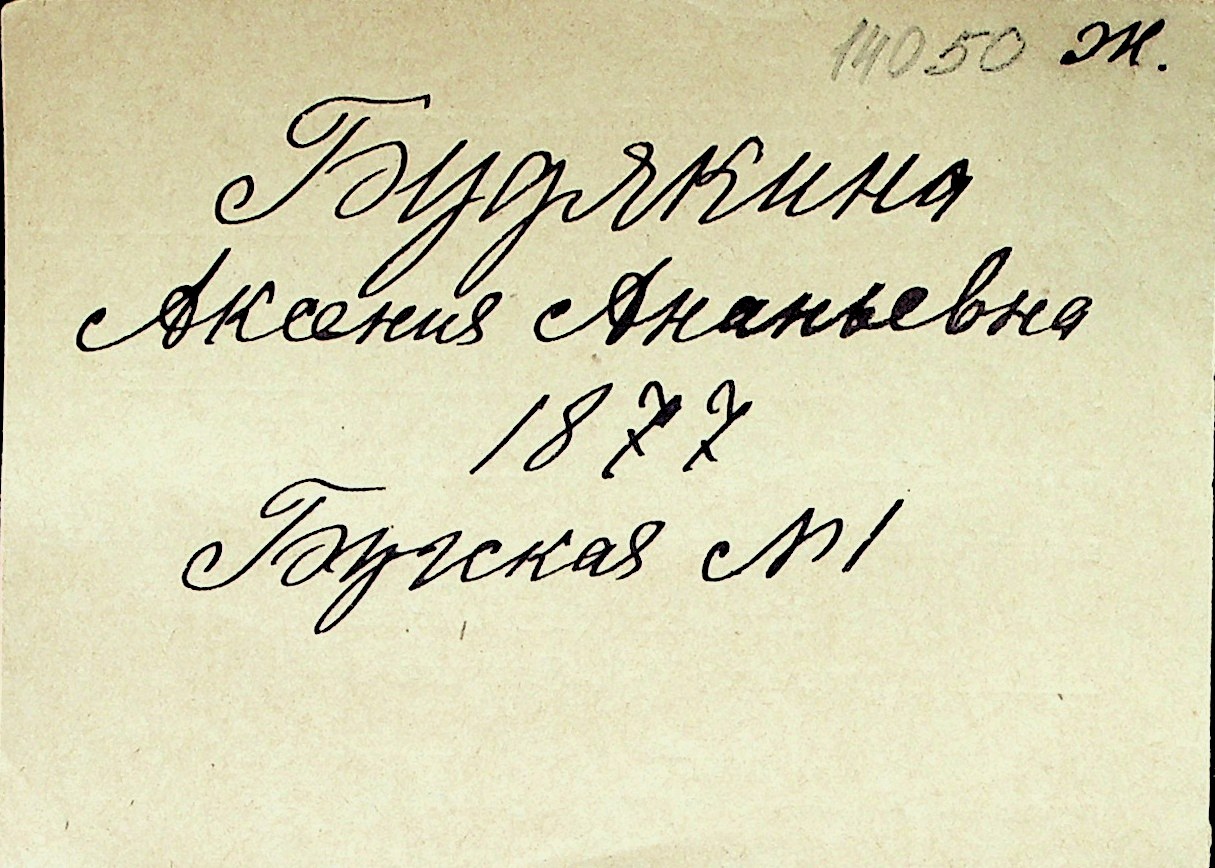 14050 Ж.
Будякина
Аксения Ананьевна
1877
Бугская №1